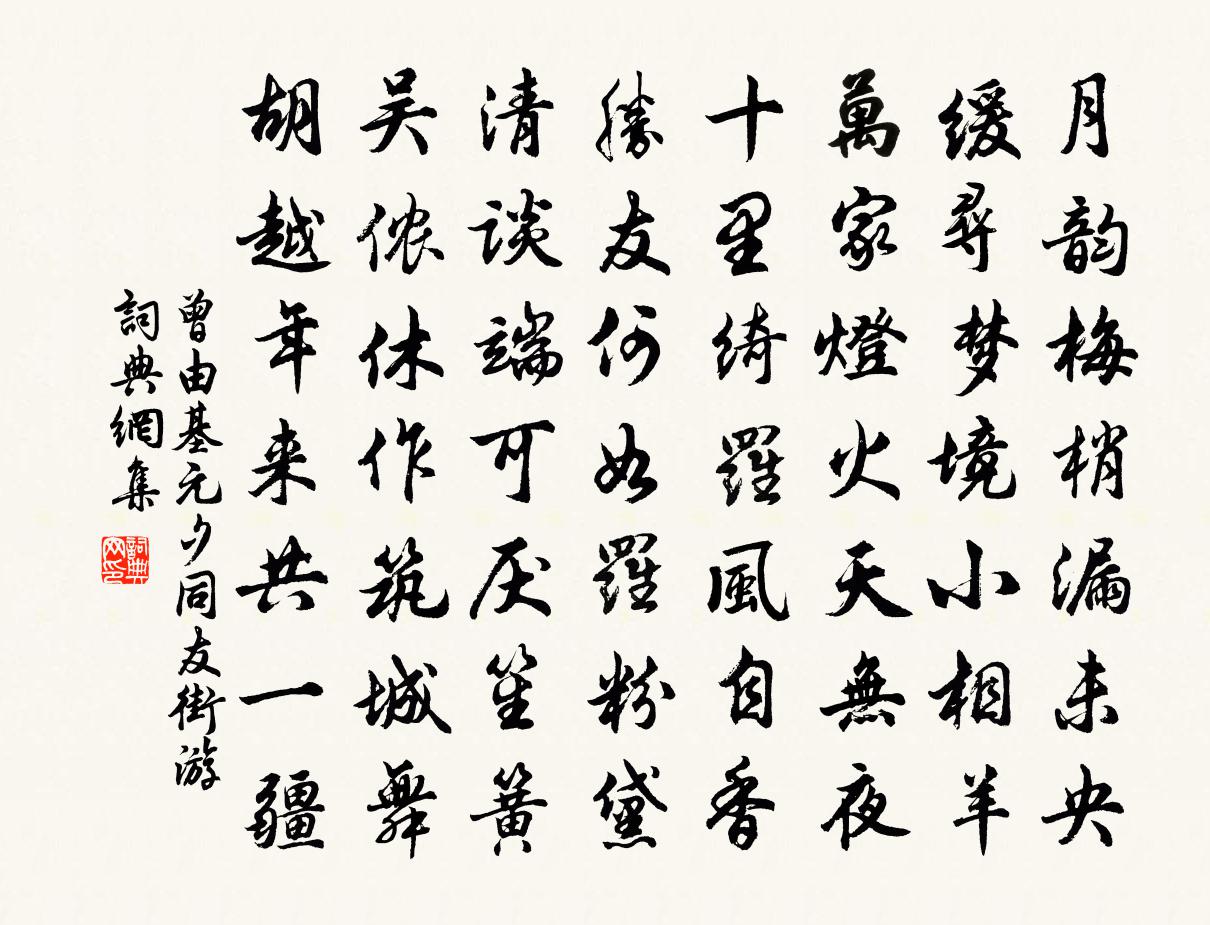 月韵梅梢漏未央
缓尋梦境小相羊
萬家燈火天無夜
十里绮羅風自香
勝友何如羅粉黛
清談端可厌笙簧
吴侬休作筑城舞
胡越年来共一疆
曾由基元夕同友街游
詞典網集
詞典网印